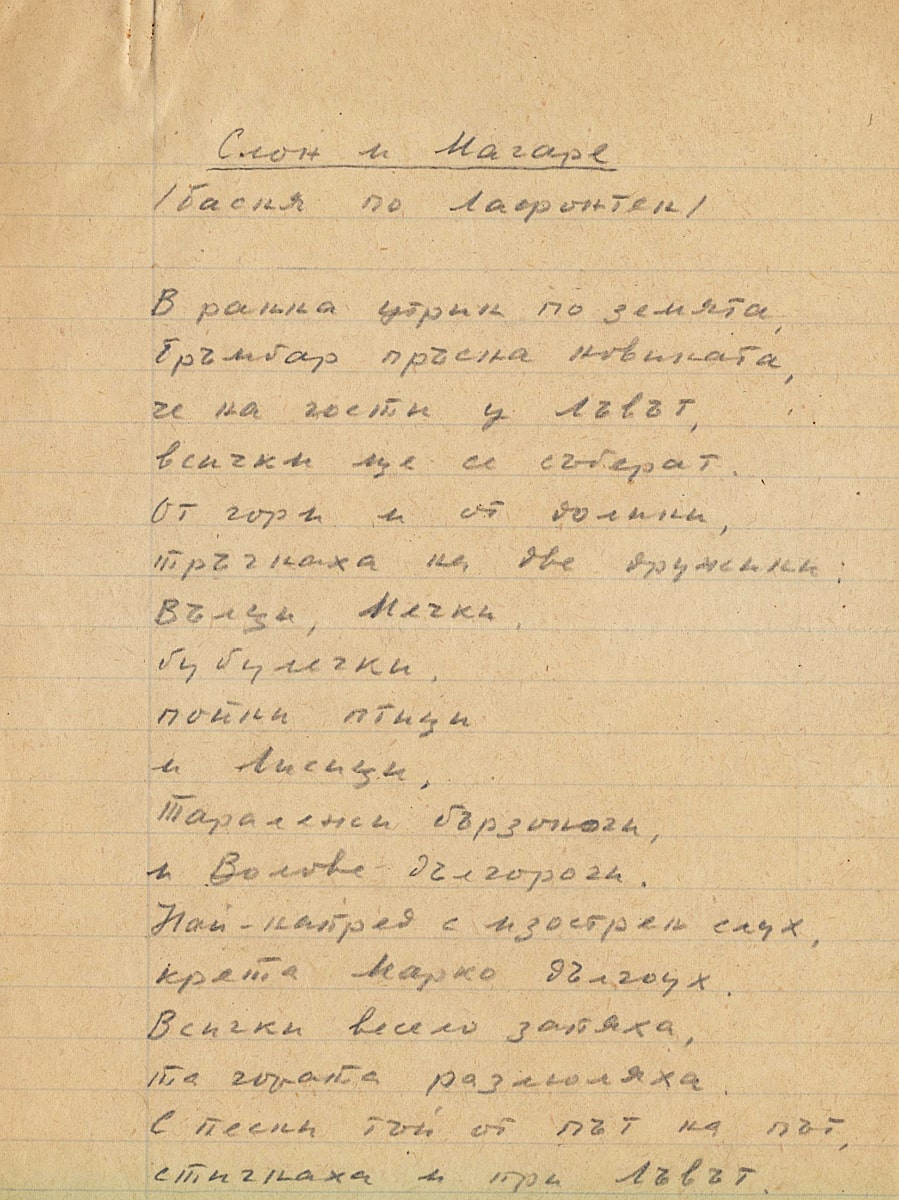 Слон и Магаре
/басня по Лафонтен/
В ранна утрин по земята,
Бръмбар пръсна новината,
че на гости у Лъвът,
всички ще се съберат.
От гори и от долини,
тръгнаха на две дружини:
Вълци, Мечки,
бубулечки,
пойни птици
и Лисици,
Таралежи бързоноги,
и Волове дългороги.
Най-напред с изострен слух,
крета Марко дългоух.
Всички весело запяха,
та гората разлюляха.
С песни тъй от път на път,
стигнаха и при Лъвът.